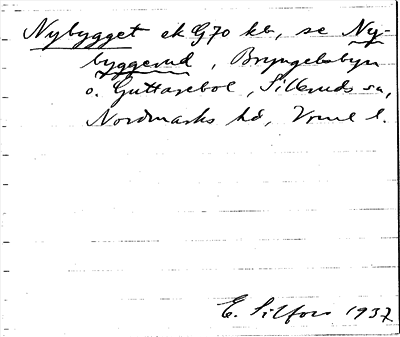 Nybygget ek G70 kb, se Ny-
byggerud, Bryngelsbyn
o. Guttarebol, Silleruds sn,
Nordmarks hd, Vrml l.
E. Silfors 1937